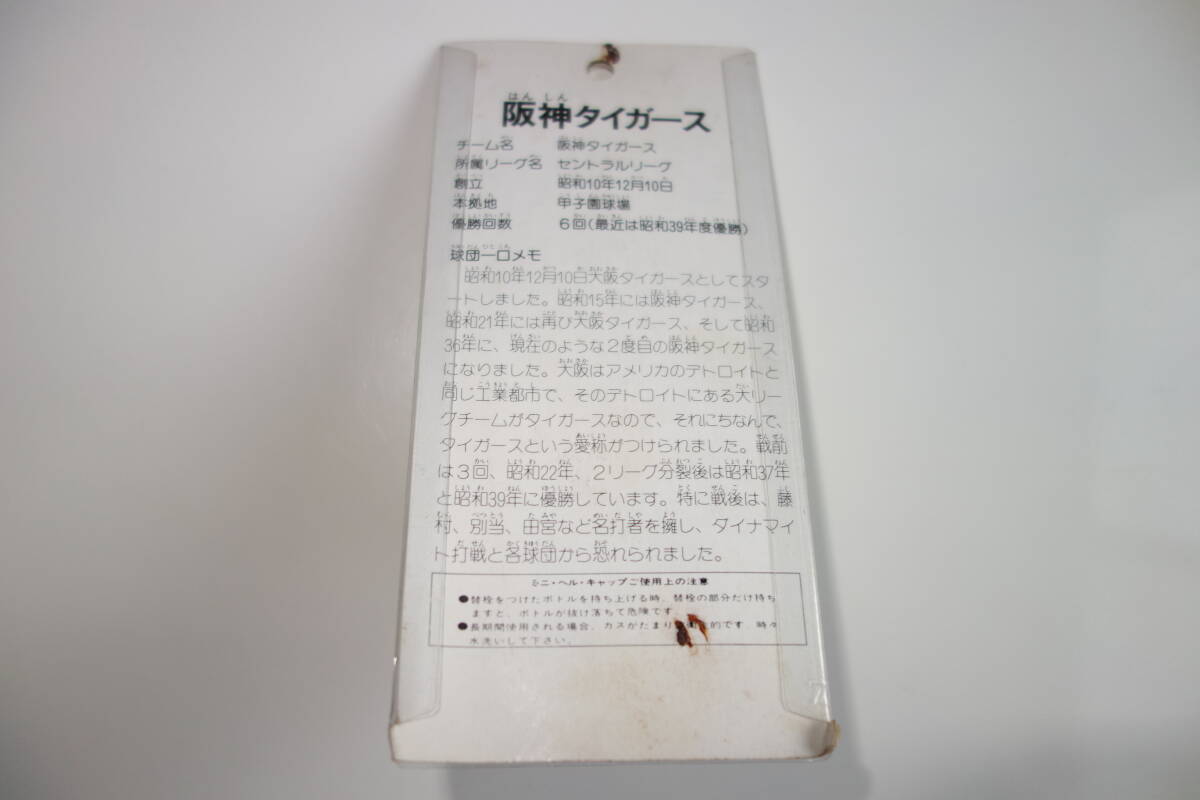 はん しん
阪神タイガース
チーム名 阪神タイガース
所属リーグ名 セントラルリーグ
創立 昭和10年12月10日
本拠地 甲子園球場
優勝回数 6回(最近は昭和39年度優勝)
球団一口メモ
昭和10年12月10日大阪タイガースとしてスタ
ートしました。昭和15年には阪神タイガース、
昭和21年には再び大阪タイガース、そして昭和
36年に、現在のような2度目の阪神タイガース
になりました。大阪はアメリカのデトロイトと
同じ工業都市で、そのデトロイトにある大リー
グチームがタイガースなので、それにちなんで、
タイガースという愛称がつけられました。戦前
は3回、昭和22年、2リーグ分裂後は昭和37年
と昭和39年に優勝しています。特に戦後は、藤
村、別当、田宮など名打者を擁し、ダイナマイ
ト打戦と各球団から恐れられました。
ミニ・ヘル・キャップご使用上の注意
●替栓をつけたボトルを持ち上げる時、替栓の部分だけ持ち
ますと、ボトルが抜け落ちて危険です。
●長期間使用される場合、カスがたまり 的です、時々
水洗いして下さい。